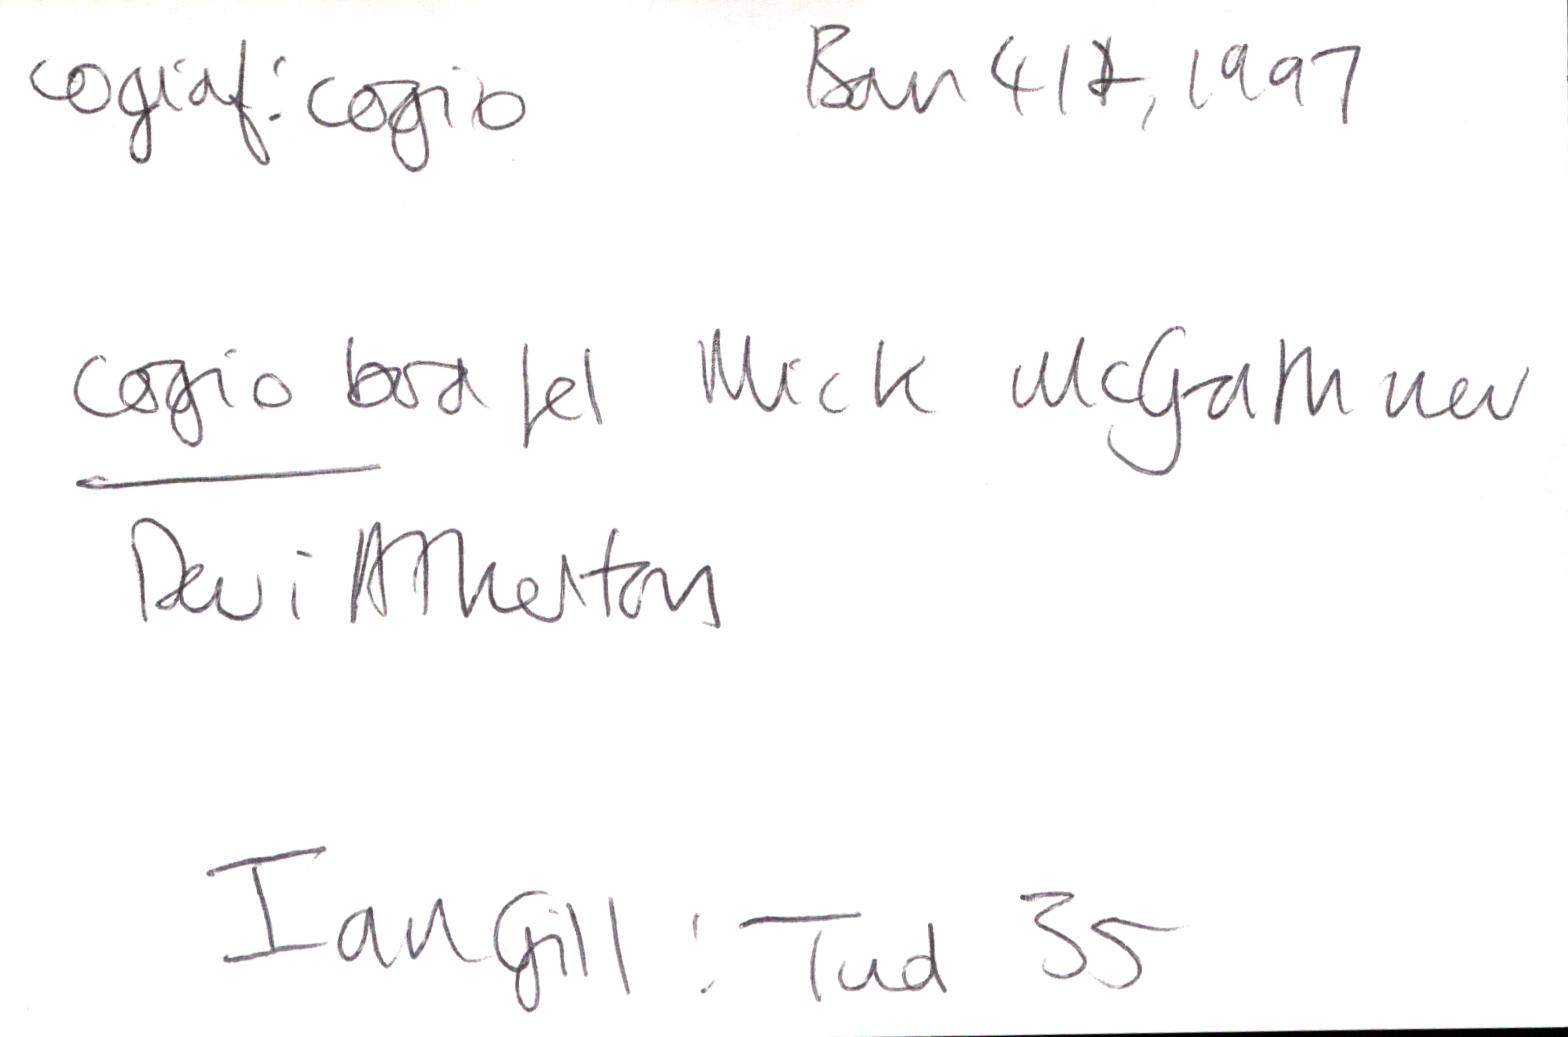 cogiaf: cogio Barn 41+, 1997
cogio bod fel Mick McGahhuev
Dewi Atherton
Ian Gill: Tud 35